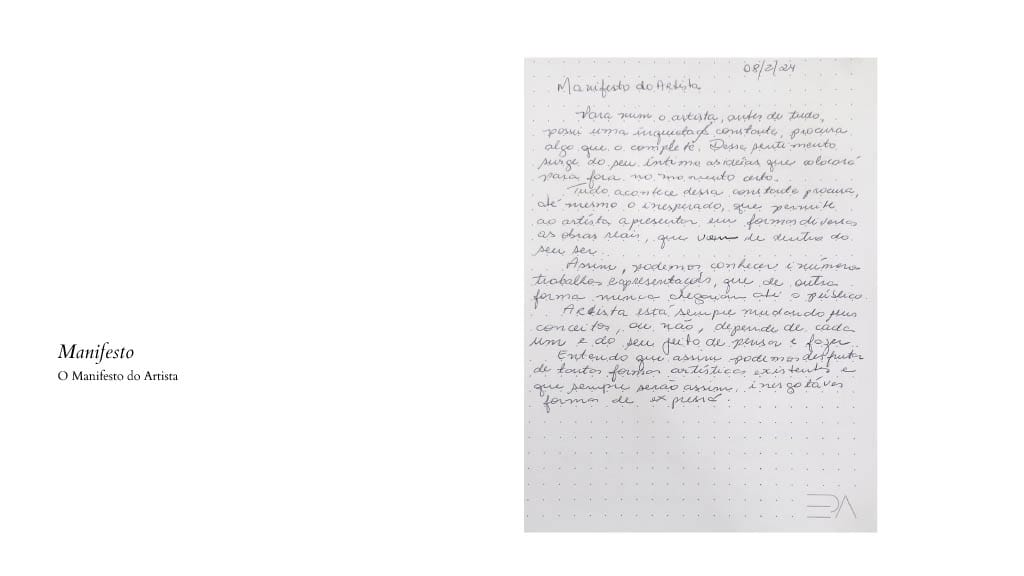 Manifesto
O Manifesto do Artista
08/2/24
Manifesto do Artista
Para mim o artista, antes de tudo,
possui uma inquietação constante, procura
algo que o complete. Desse sentimento
surge do seu íntimo as ideias que colocará
para fora no momento certo.
Tudo acontece dessa constante procura,
até mesmo o inesperado, que permite
ao artista apresentar em formas diversas
as obras reais, que vem de dentro do
seu ser.
Assim, podemos conhecer inúmeros
trabalhos e apresentações, que de outra
forma nunca chegariam até o público.
Artista está sempre mudando seus
conceitos, ou não, depende de cada
um e do seu jeito de pensar e fazer.
Entendo que assim podemos desfrutar
de tantas formas artísticas existentes e
que sempre serão assim, inesgotáveis
formas de expressão.